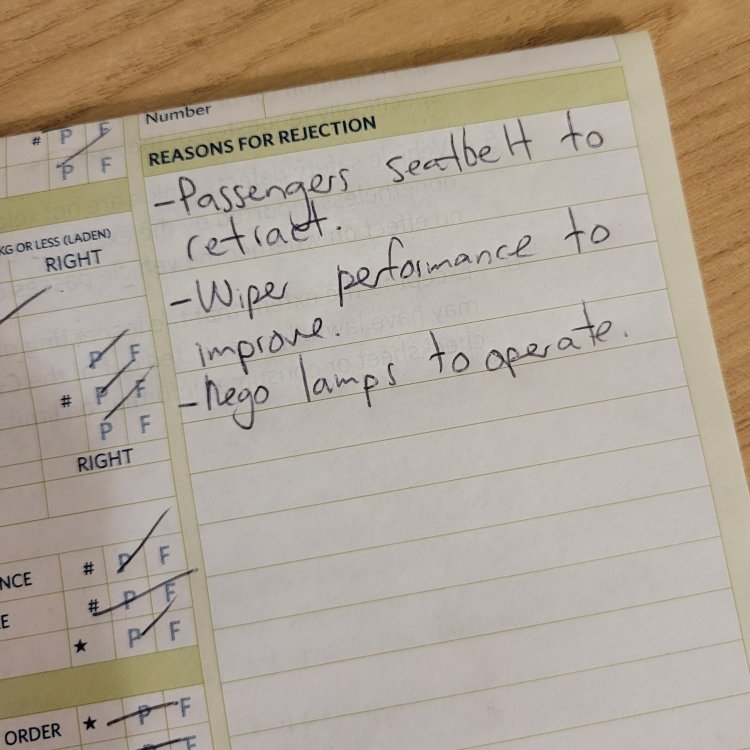 Number
REASONS FOR REJECTION
-Passengers seatbelt to
retract.
-Wiper performance to
improve.
-Rego lamps to operate.
# P F
P F
KG OR LESS (LADEN)
RIGHT
P F
# P F
P F
RIGHT
NCE # P F
E # P F
★ P F
ORDER ★ P F
F